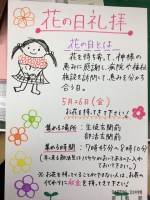 花の日礼拝
花の日とは
花を持ち寄って、神様の
恵みに感謝し、病院や福祉
施設を訪問して恵みを分かち
合う日。
5月26日(金)
お花を持ってきて下さい!
集める場所:生徒玄関前
部活玄関前
集める時間:7時45分〜8時10分